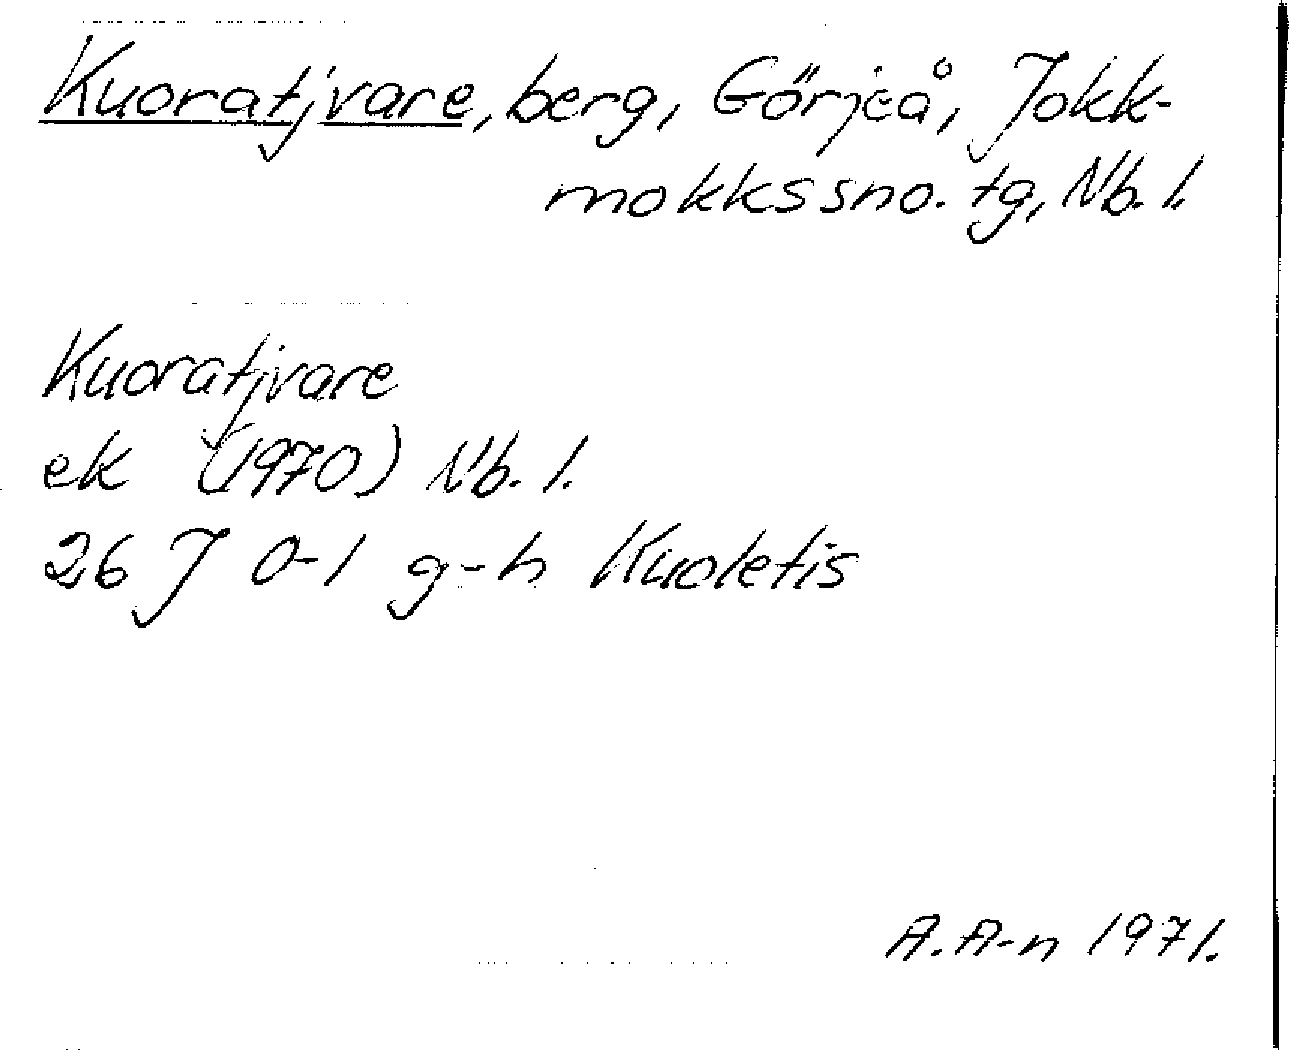 Kuoratjvare, berg, Görjeå, Jokk-
mokkssno. tg, Nb. l.
Kuoratjvare
ek (1970) Nb. l.
26 J 0-1 g-h Kuoletis
A. A-n 1971.